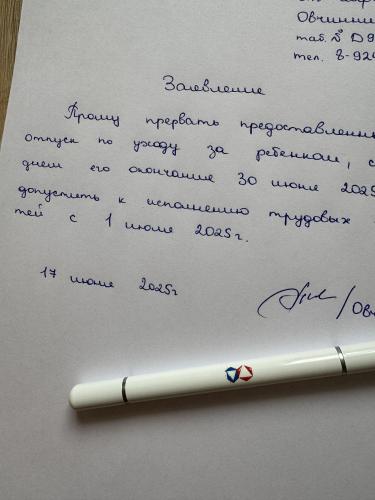 Овчинни
таб. № D9
тел. 8-924
Заявление
Прошу прервать предоставленны
отпуск по уходу за ребенком, с
днем его окончание 30 июне 2025
допустить к исполнению трудовых
тей с 1 июля 2025г.
17 июня 2025г
/Овч